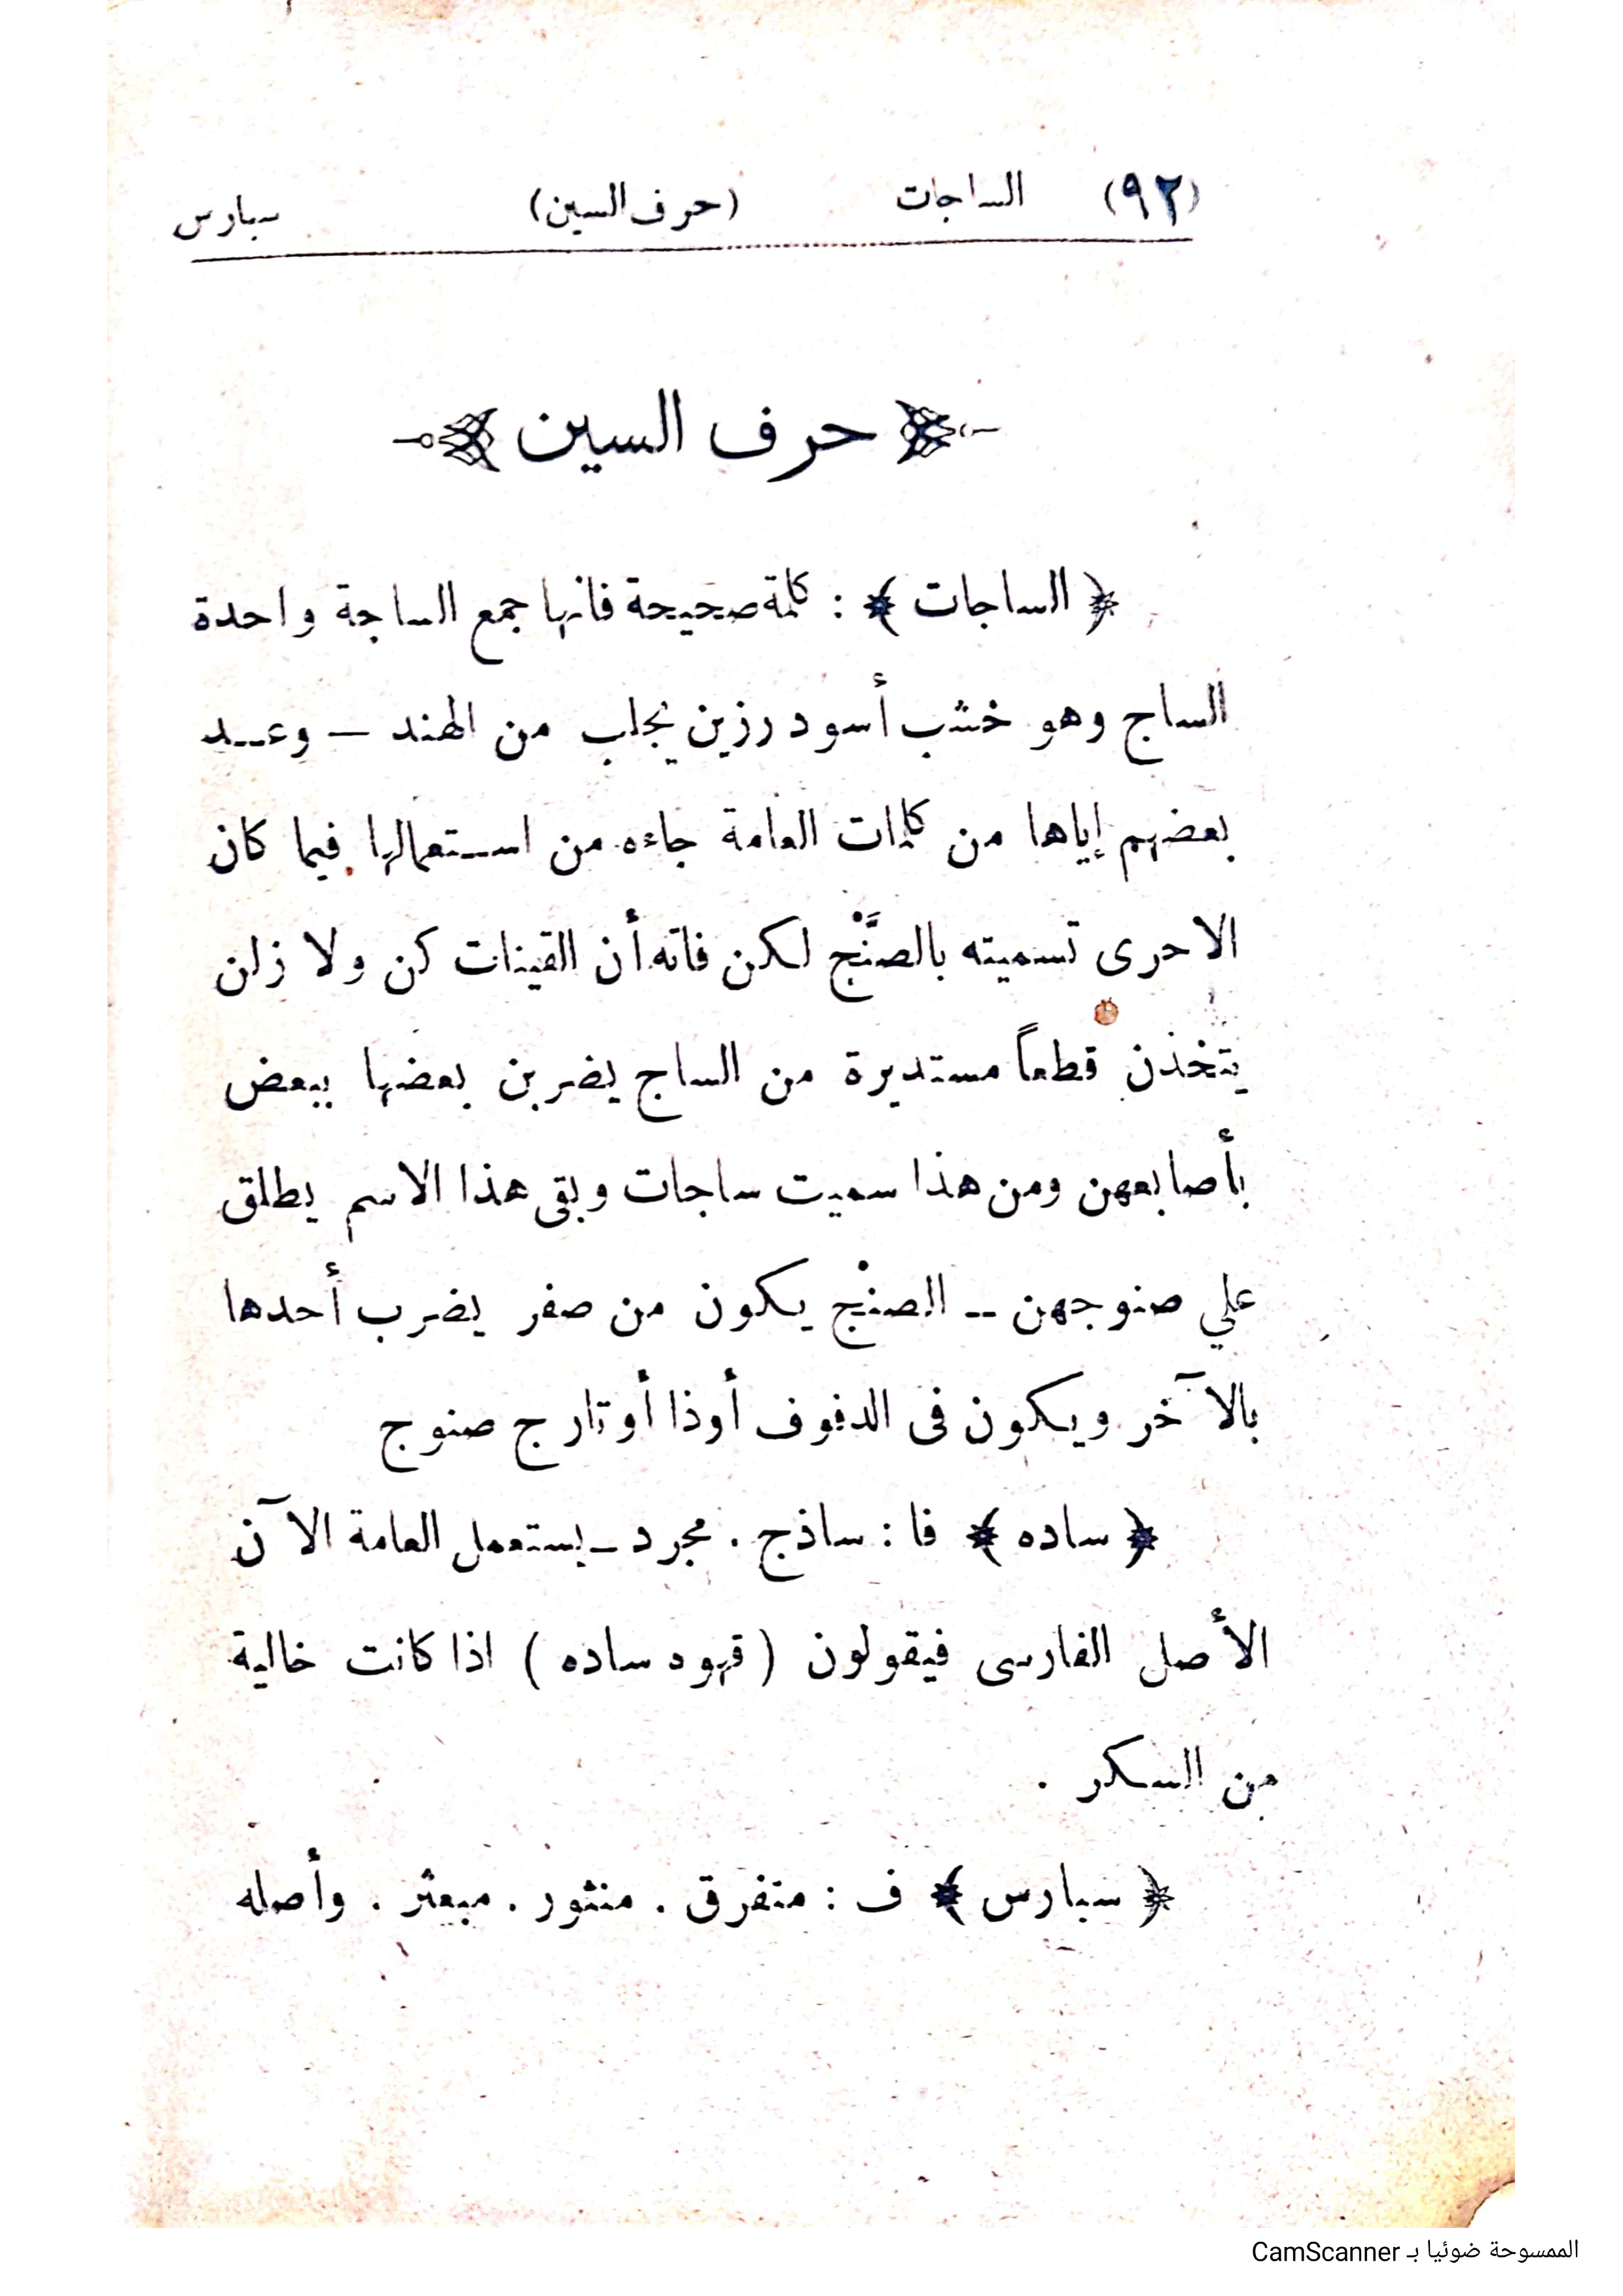 (٩٢) الساجات (حرف السين) سبارس
حرف السين
﴿ الساجات ﴾ : كلمة صحيحة فانها جمع الساجة واحدة
الساج وهو خشب أسود رزين يجلب من الهند — وعد
بعضهم إياها من كلمات العامة جاءه من استعمالها فيما كان
الاحرى تسميته بالصَّنْج لكن فاته أن القينات كن ولا زلن
يتخذن قطعاً مستديرة من الساج يضربن بعضها ببعض
بأصابعهن ومن هذا سميت ساجات وبقى هذا الاسم يطلق
علي صنوجهن — الصنْج يكون من صفر يضرب أحدها
بالآخر ويكون فى الدفوف أوذا أوتار ج صنوج
﴿ ساده ﴾ فا : ساذج . مجرد — يستعمل العامة الآن
الأصل الفارسى فيقولون ( قهوه ساده ) اذا كانت خالية
من السكر .
﴿ سبارس ﴾ ف : متفرق . منثور . مبعثر . وأصله
الممسوحة ضوئيا بـ CamScanner